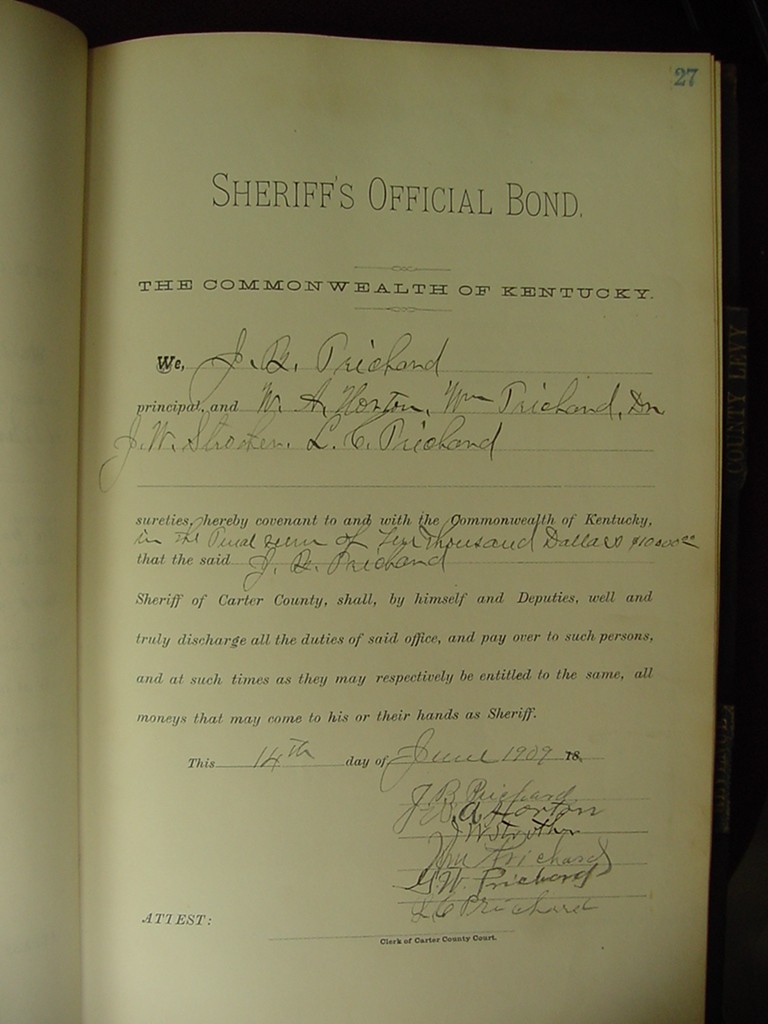 27
SHERIFF'S OFFICIAL BOND.
THE COMMONWEALTH OF KENTUCKY.
We, J. B. Prichard
principal, and W. A. Horton, Wm Prichard,
J. W. Strother. L. C. Prichard
sureties, hereby covenant to and with the Commonwealth of Kentucky,
in the Penal sum of Ten Thousand Dollars $10000 00
that the said J. B. Prichard
Sheriff of Carter County, shall, by himself and Deputies, well and
truly discharge all the duties of said office, and pay over to such persons,
and at such times as they may respectively be entitled to the same, all
moneys that may come to his or their hands as Sheriff.
This 14th day of June 1909 18
J B Prichard
W. A Horton
J W Strother
Wm Prichard
G. W. Prichard
L C Prichard
ATTEST:
Clerk of Carter County Court.
COUNTY LEVY